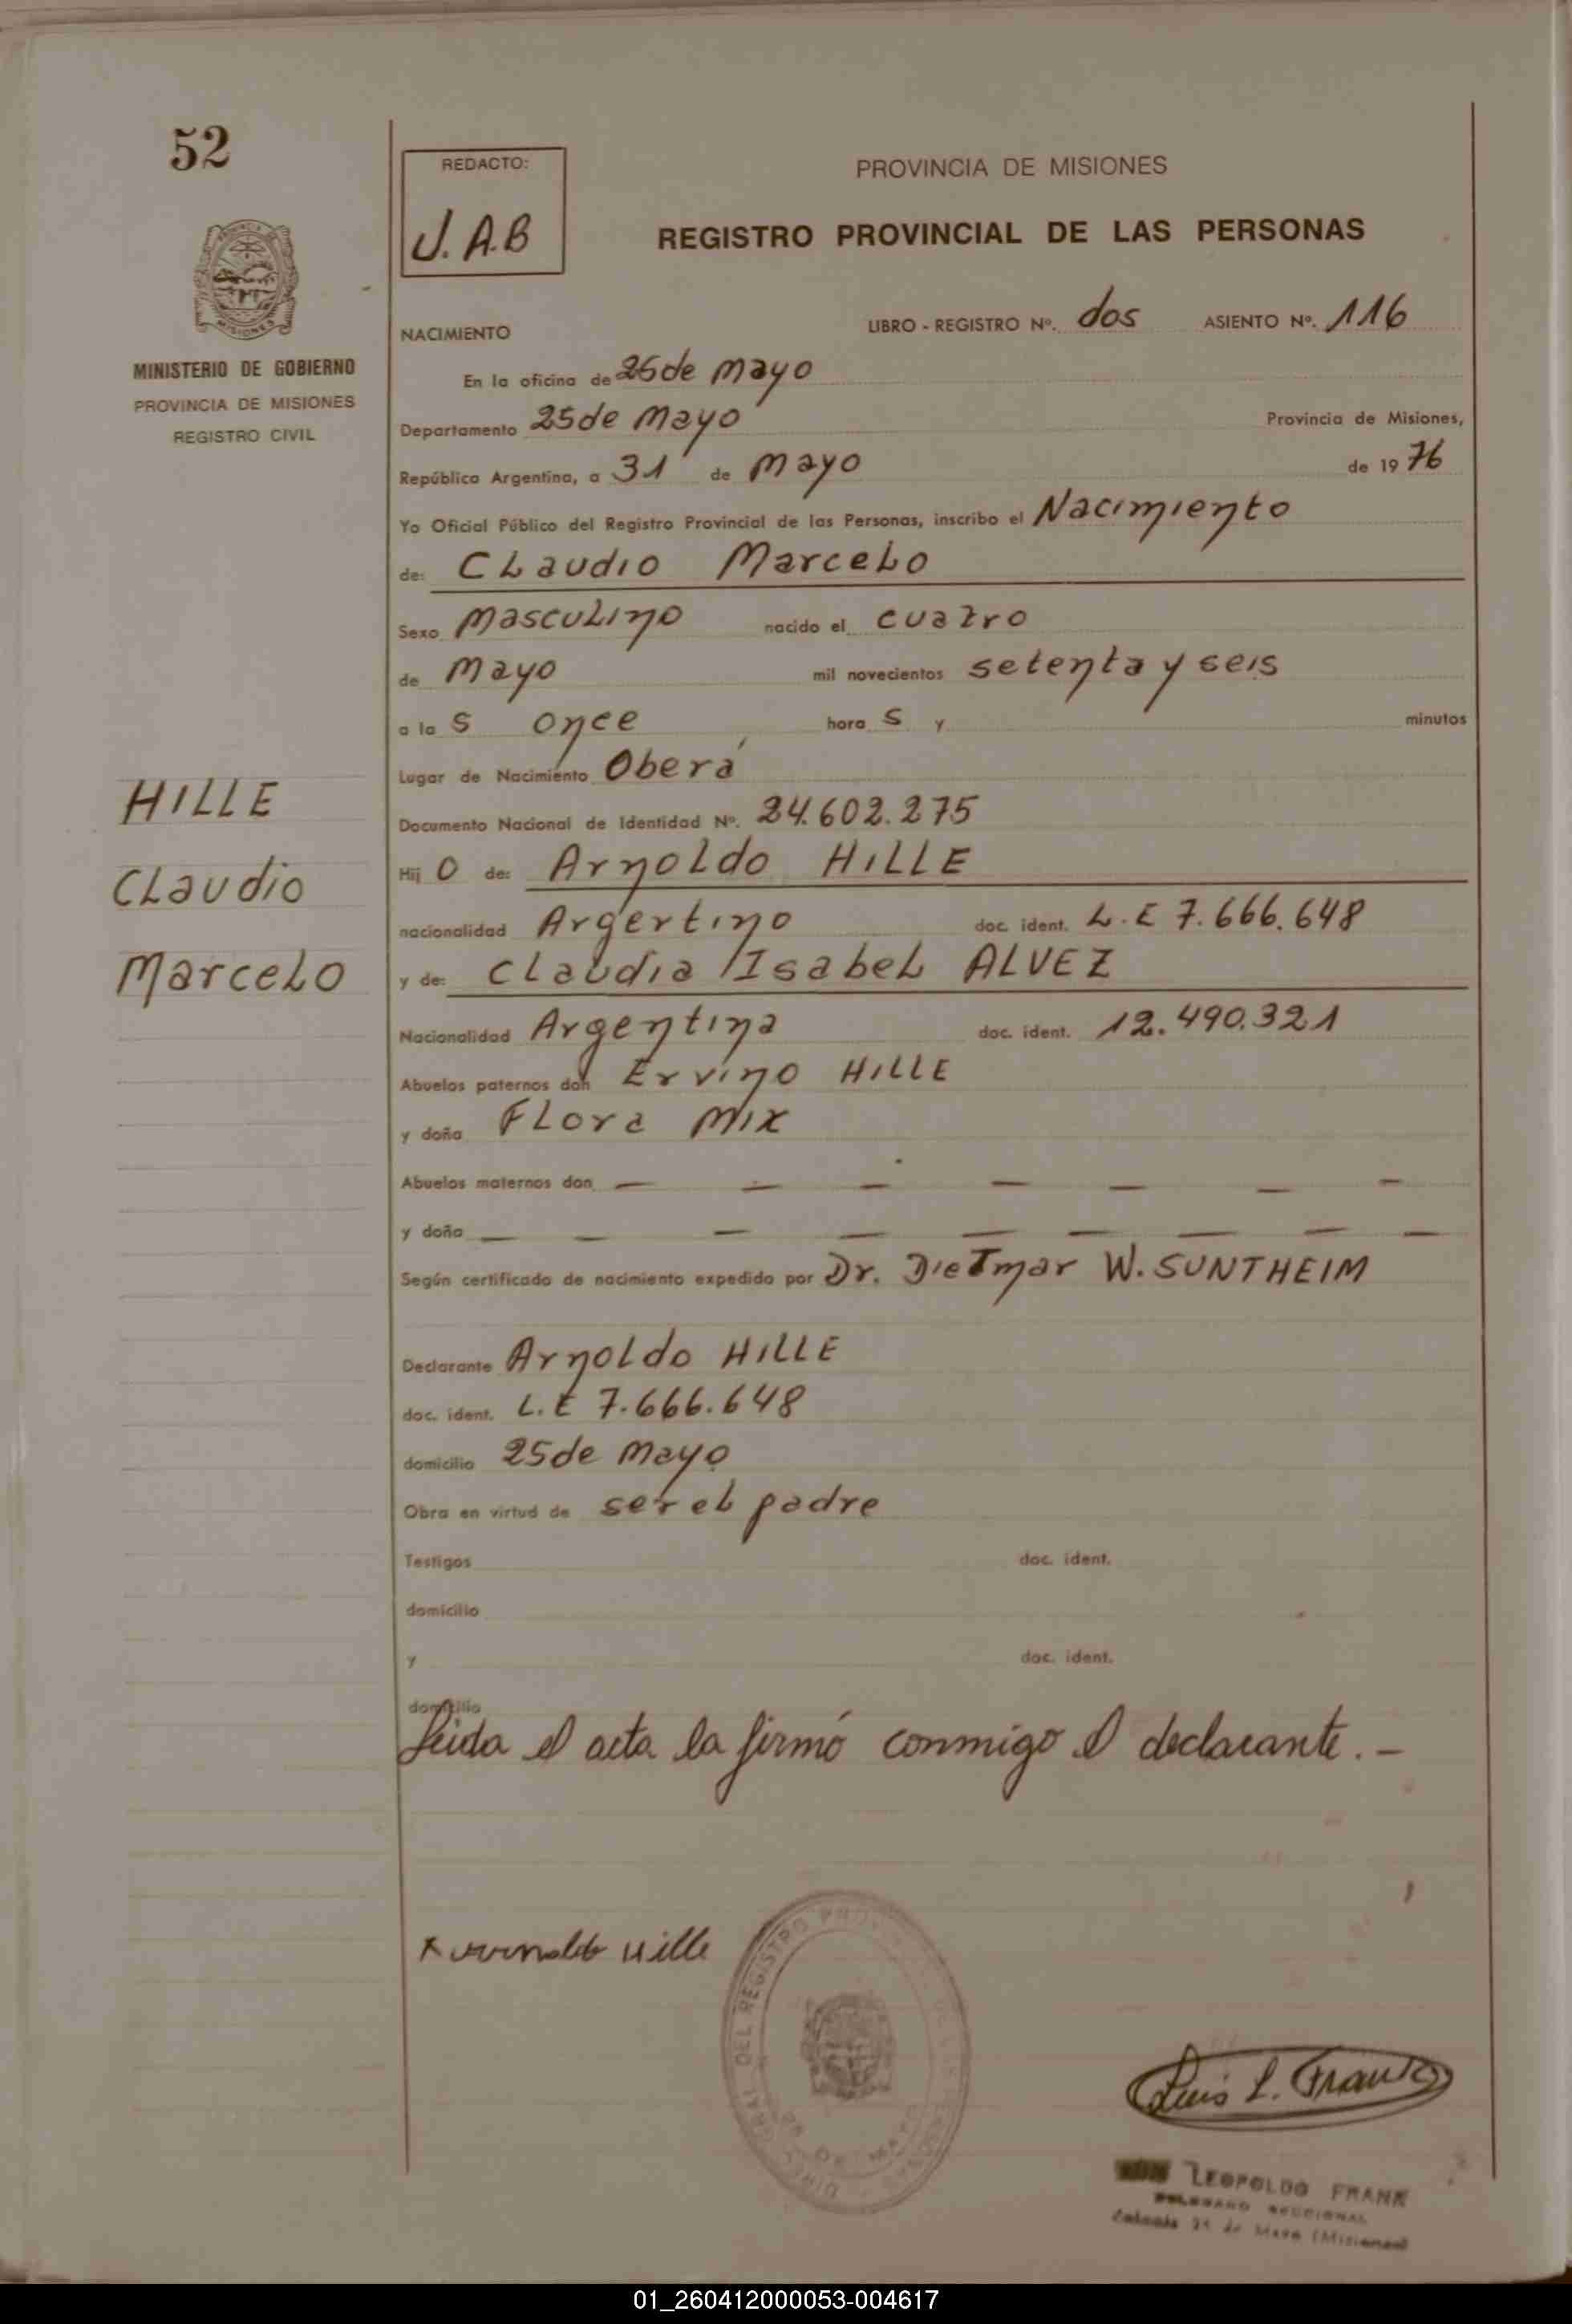 52
REDACTO:
J.A.B
PROVINCIA DE MISIONES
REGISTRO PROVINCIAL DE LAS PERSONAS
MINISTERIO DE GOBIERNO
PROVINCIA DE MISIONES
REGISTRO CIVIL
NACIMIENTO
LIBRO - REGISTRO Nº. dos ASIENTO Nº. 116
En la oficina de 25 de Mayo
Departamento 25 de Mayo Provincia de Misiones,
República Argentina, a 31 de Mayo de 1976
Yo Oficial Público del Registro Provincial de las Personas, inscribo el Nacimiento
de: CLaudio MarceLo
Sexo MascuLino nacido el cuatro
de Mayo mil novecientos setenta y seis
a la s once hora s y minutos
Lugar de Nacimiento Oberá
Documento Nacional de Identidad Nº. 24.602.275
HILLE
CLaudio
MarceLo
Hij o de: ArnoLdo HILLE
nacionalidad Argertino doc. ident. L.E 7.666.648
y de: CLaudia IsabeL ALVEZ
Nacionalidad Argentina doc. ident. 12.490.321
Abuelos paternos don Ervino HILLE
y doña FLora Mix
Abuelos maternos don — — — — — — —
y doña — — — — — — — — —
Según certificado de nacimiento expedido por Dr. Dietmar W. SUNTHEIM
Declarante ArnoLdo HILLE
doc. ident. L.E 7.666.648
domicilio 25 de Mayo
Obra en virtud de ser eL padre
Testigos doc. ident.
domicilio
y doc. ident.
domicilio
Leida el acta la firmó conmigo el declarante. -
Hille
Luis L. Frank
LEOPOLDO FRANK
DELEGADO SECCIONAL
Colonia 25 de Mayo (Misiones)
01_260412000053-004617